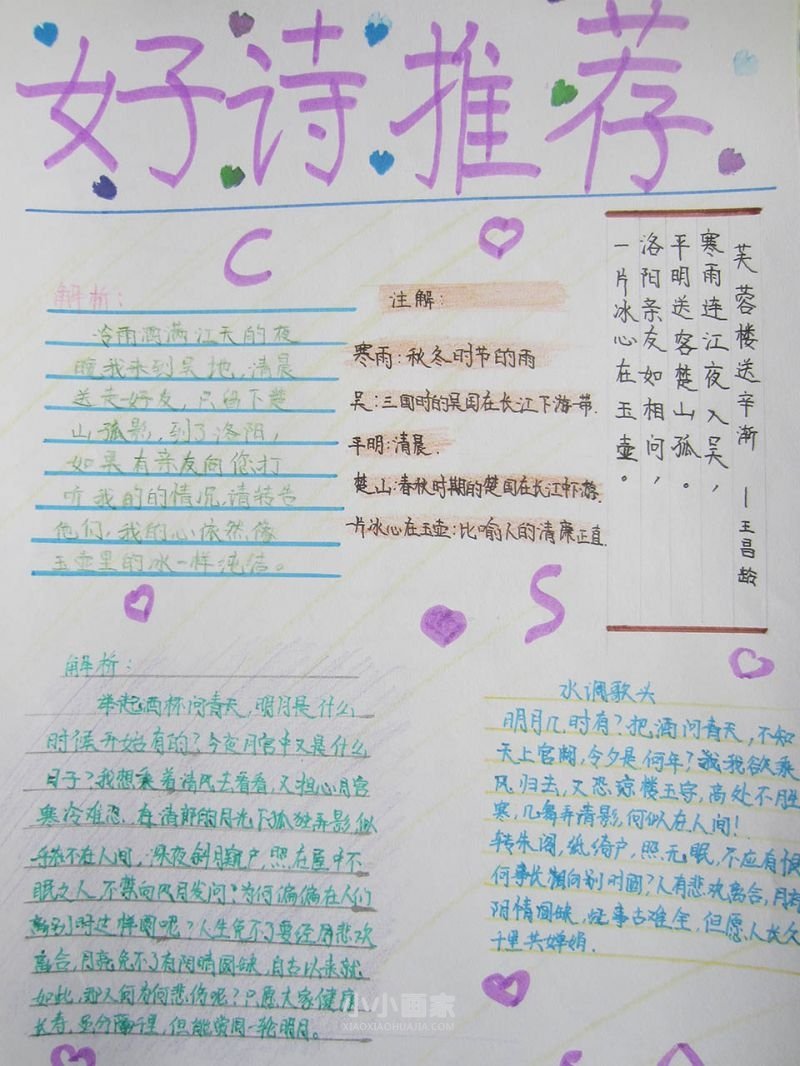 好诗推荐
芙蓉楼送辛渐 —王昌龄
寒雨连江夜入吴，
平明送客楚山孤。
洛阳亲友如相问，
一片冰心在玉壶。
解析：
冷雨洒满江天的夜
晚我来到吴地，清晨
送走好友，只留下楚
山孤影，到了洛阳，
如果有亲友向您打
听我的的情况，请转告
他们，我的心依然像
玉壶里的冰一样纯洁。
注解：
寒雨：秋冬时节的雨
吴：三国时的吴国在长江下游一带.
平明：清晨.
楚山：春秋时期的楚国在长江中下游.
一片冰心在玉壶：比喻人的清廉正直.
C
S
解析：
举起酒杯问青天，明月是什么
时候开始有的？今夜月宫中又是什么
日子？我想乘着清风去看看，又担心月宫
寒冷难忍，在清郎的月光下孤独弄影似
不在人间，深夜斜月窥户，照在屋中不
眠之人，不禁向风月发问：为何偏偏在人们
离别时这样圆呢？人生免不了要经历悲欢
离合，月亮免不了有阴晴圆缺，自古以来就
如此，那人何为何悲伤呢？只愿大家健康
长寿，虽分隔千里，但能赏同一轮明月。
水调歌头
明月几时有？把酒问青天，不知
天上宫阙，今夕是何年？我欲乘
风归去，又恐琼楼玉宇，高处不胜
寒，几舞弄清影，何似在人间！
转朱阁，低绮户，照无眠，不应有恨
何事长向别时圆？人有悲欢离合，月有
阴情圆缺，事古难全，但愿人长久
千里共婵娟.
小小画家
XIAOXIAOHUAJIA.COM